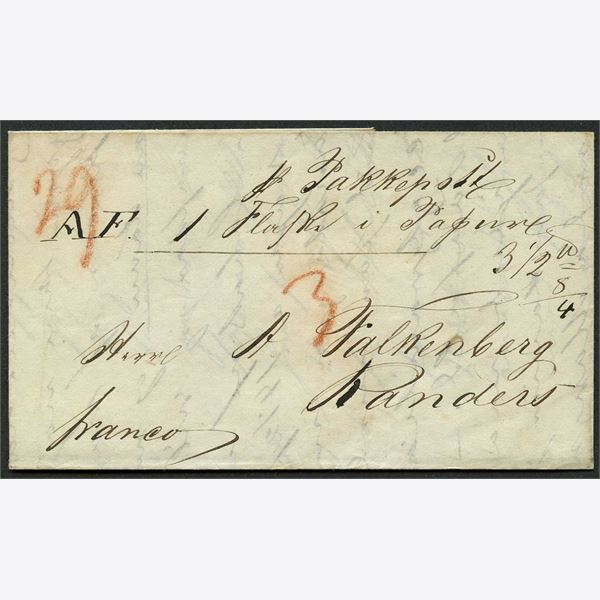 29
p Pakkepost
A.F. 1 Flaske i Papiir
3 1/2 ℔
8/4
3
Herr A. Falkenberg
Randers
franco